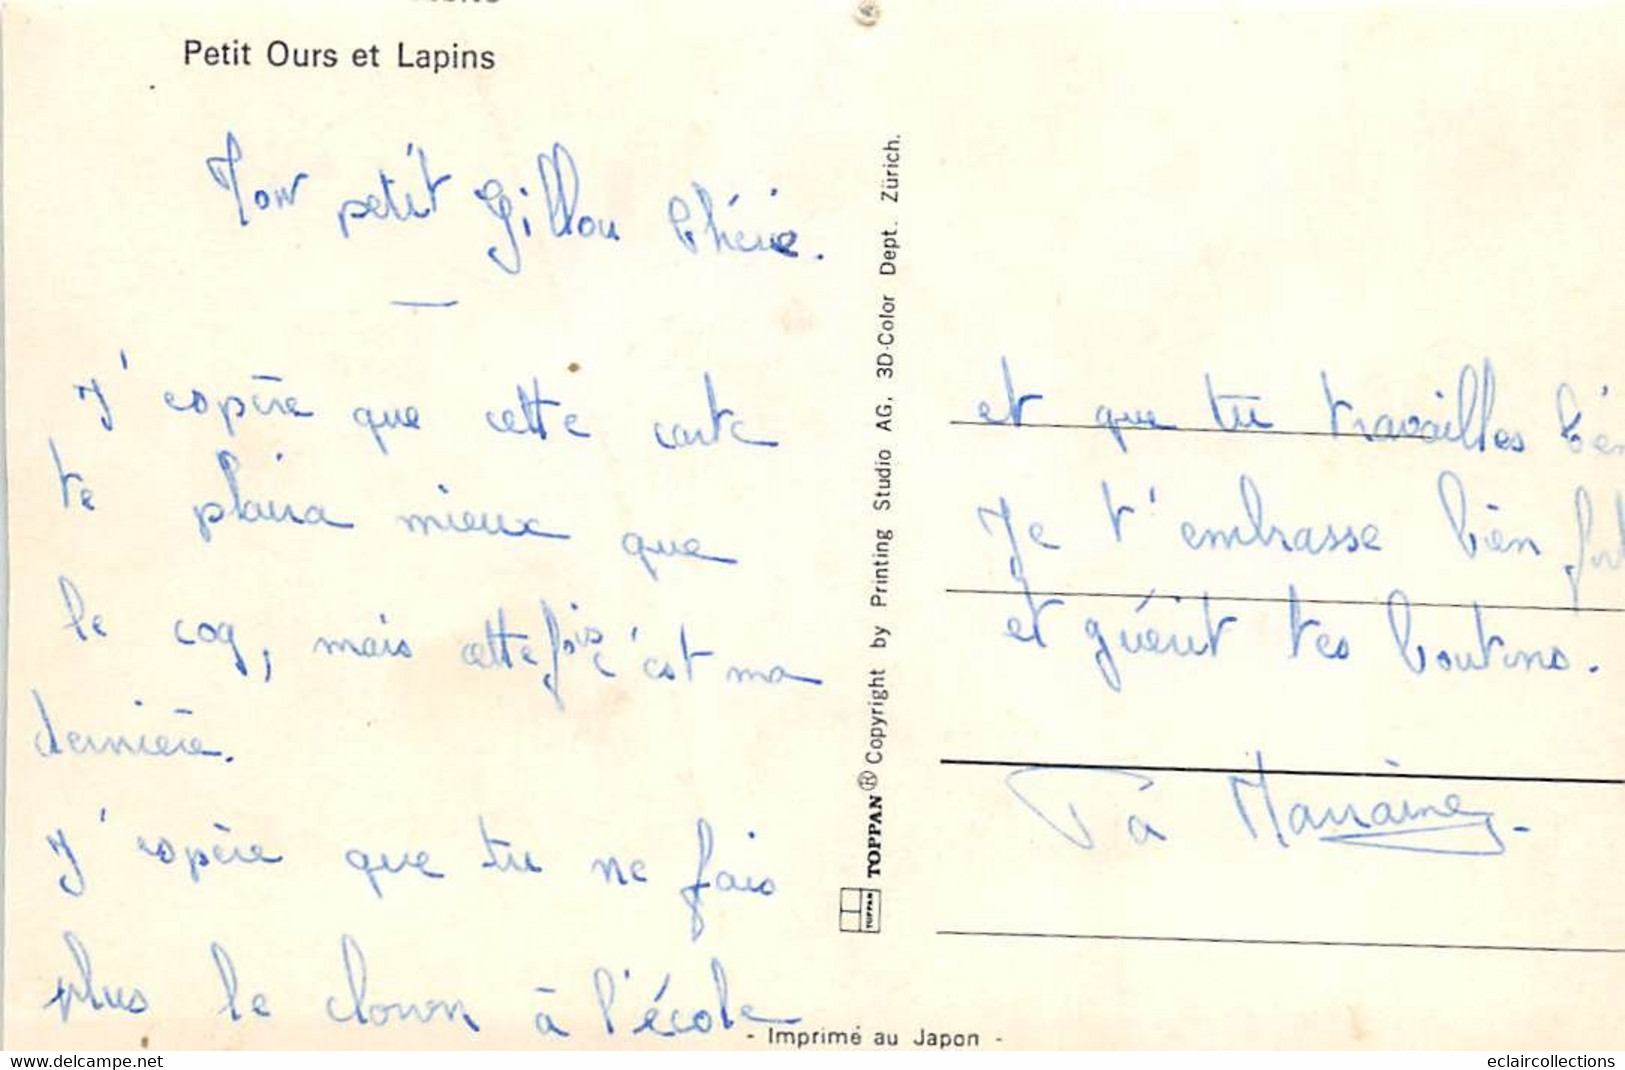 Petit Ours et Lapins
Mon petit Gillou Chérie.
J'espère que cette carte
te plaira mieux que
le coq, mais cette fois c'est ma
dernière.
J'espère que tu ne fais
plus le clown à l'école
- Imprimé au Japon -
TOPPAN ® Copyright by Printing Studio AG, 3D-Color Dept. Zürich.
TOPPAN
et que tu travailles bien
Je t'embrasse bien fort
et guérit tes boutons.
Ta Marraine
delcampe.net
eclaircollections